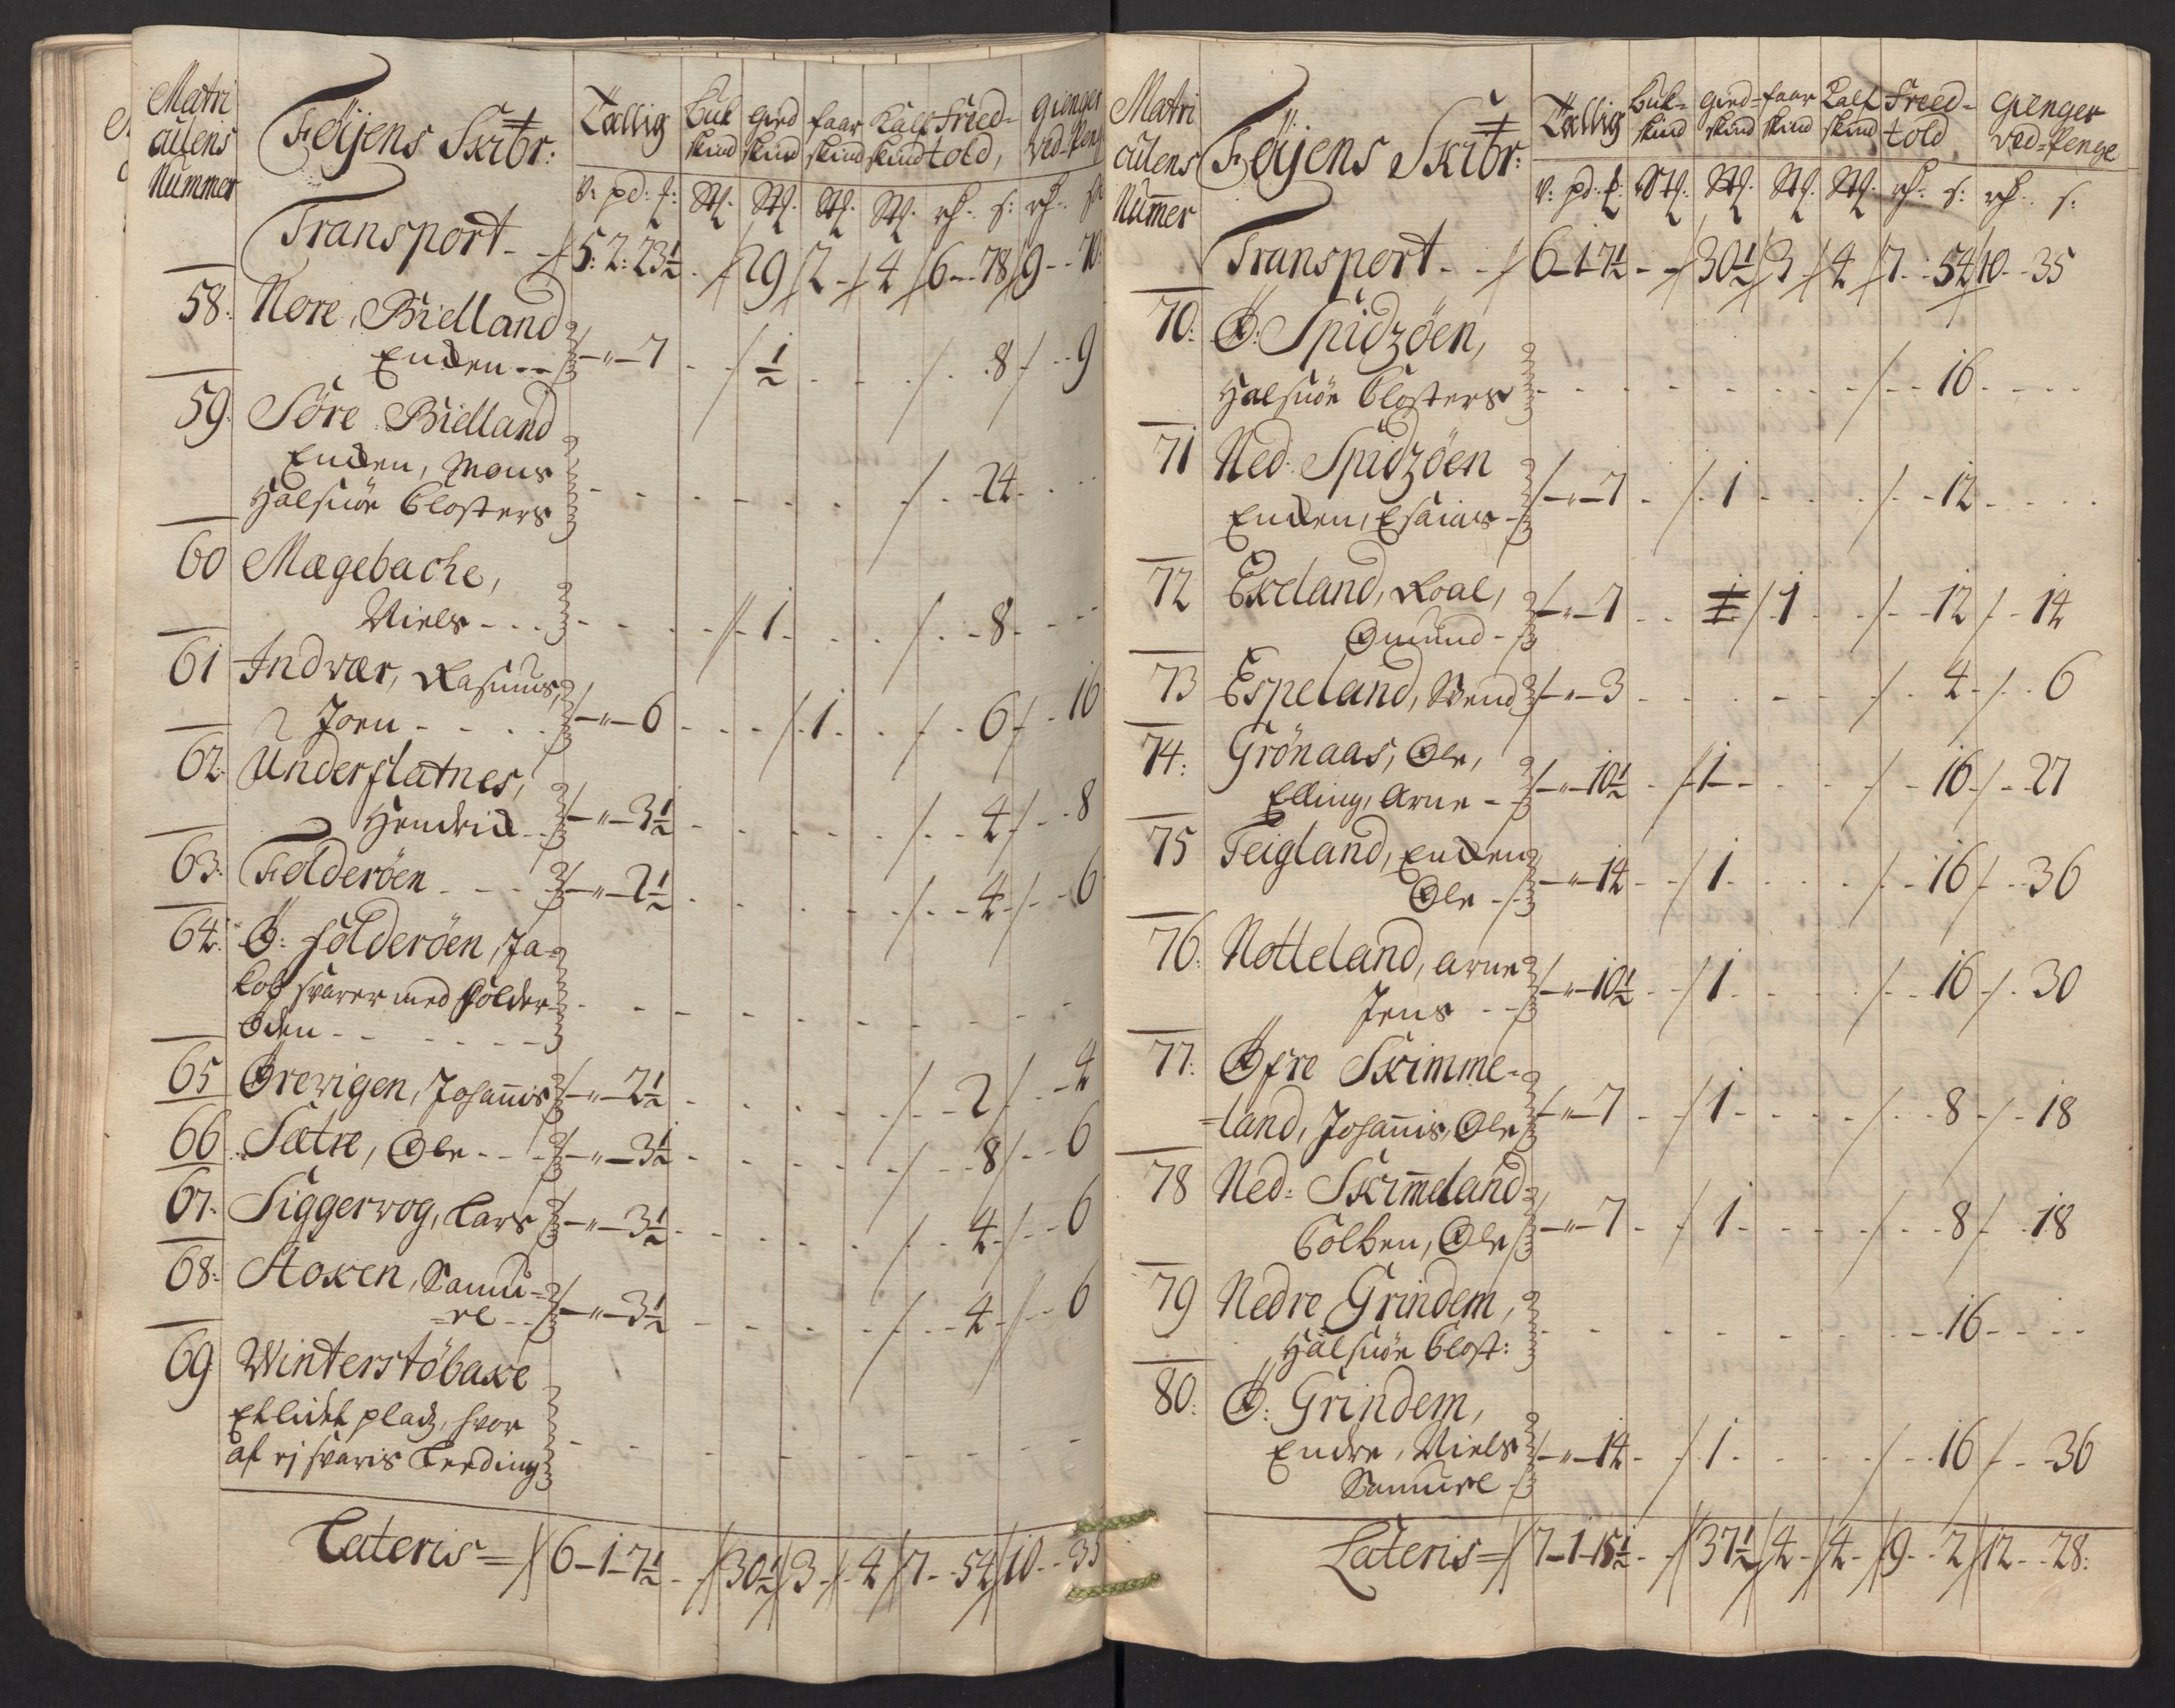 Matri
culens
Nummer
Föÿens Skibr:
Tællig
Buk
skind
gied
skind
faar
skind
Kalf
skind
Freed-
told,
gienger
ved-Peng
v: pd: ℔:
Stk:
Stk:
Stk:
Stk:
rd: s:
rd: s:
Transport - - 5: 2: 23½ - 29 2 - 4 6 - - 78 9 - - 70
58: Nore, Bielland
Enken - - - " - 7 - - ½ - - - 8 - - 9
59: Söre Bielland
Enken, Mons
Halsnöe Closters - - - - - - - 24 - - -
60 Mægebache,
Niels - - - - - - - 1 - - - - 8 - - -
61 Indvær, Rasmus,
Joen - - - - - " - 6 - - - 1 - - - 6 - - 16
62: Underslatnes,
Hendrich - - - " - 3½ - - - - - 4 - - 8
63: Folderöen - - - - " - 2½ - - - - - 4 - - 6
64: Ö: Folderöen, Ja-
kob svarer med Folder-
öden - - - - - -
65 Örevigen, Johannis - " - 2½ - - - - - 2 - - 4
66 Sætre, Ole - - - - " - 3½ - - - - - 8 - - 6
67: Siggervog, Lars - " - 3½ - - - - - 4 - - 6
68: Stoken, Samu-
=el - - - " - 3½ - - - - - 4 - - 6
69 Winterstöbake
Et lidet pladz, hvor
af ej svaris Leeding - - - - - - -
Lateris = 6 - 1 - 7½ - - 30½ 3 - 4 7 - - 54 10 - - 35
Matri
culens
Numer
Föÿens Skibr:
Tællig
Buk-
skind
gied-
skind
faar
skind
Kalf
skind
Freed-
told
gienger
ved-Penge
v: pd: ℔:
Stk:
Stk:
Stk:
Stk:
rd: s:
rd: s:
Transport - - 6 - 1 - 7½ - - 30½ 3 4 7 - - 54 10 - - 35
70: Ö: Spidzöen,
Halsnöe Closters - - - - - - - 16 - - -
71 Ned: Spidzöen
Enken, Esaias - - " - 7 - 1 - - - - 12 - - -
72 Ekeland, Roal,
Omund - - " - 7 - - 1 - - - 12 - - 14
73 Espeland, Svend - " - 3 - - - - - 4 - - 6
74: Grönaas, Ole,
Elling, Arne - - " - 10½ - 1 - - - - 16 - - 27
75 Teigland, Enken
Ole - - " - 14 - - 1 - - - - 16 - - 36
76: Notteland, Arne
Jens - - - " - 10½ - - 1 - - - - 16 - - 30
77: Öfre Skimme-
=land, Johannis, Ole - " - 7 - - 1 - - - - 8 - - 18
78 Ned: Skimeland
Colben, Ole - " - 7 - - 1 - - - - 8 - - 18
79 Nedre Grindem,
Halsnöe Clost: - - - - - - - 16 - - -
80: Ö: Grindem,
Endre, Niels
Samuel - - " - 14 - - 1 - - - - 16 - - 36
Lateris = 7 - 1 - 15½ - - 37½ 4 - 4 - 9 - - 2 12 - - 28: